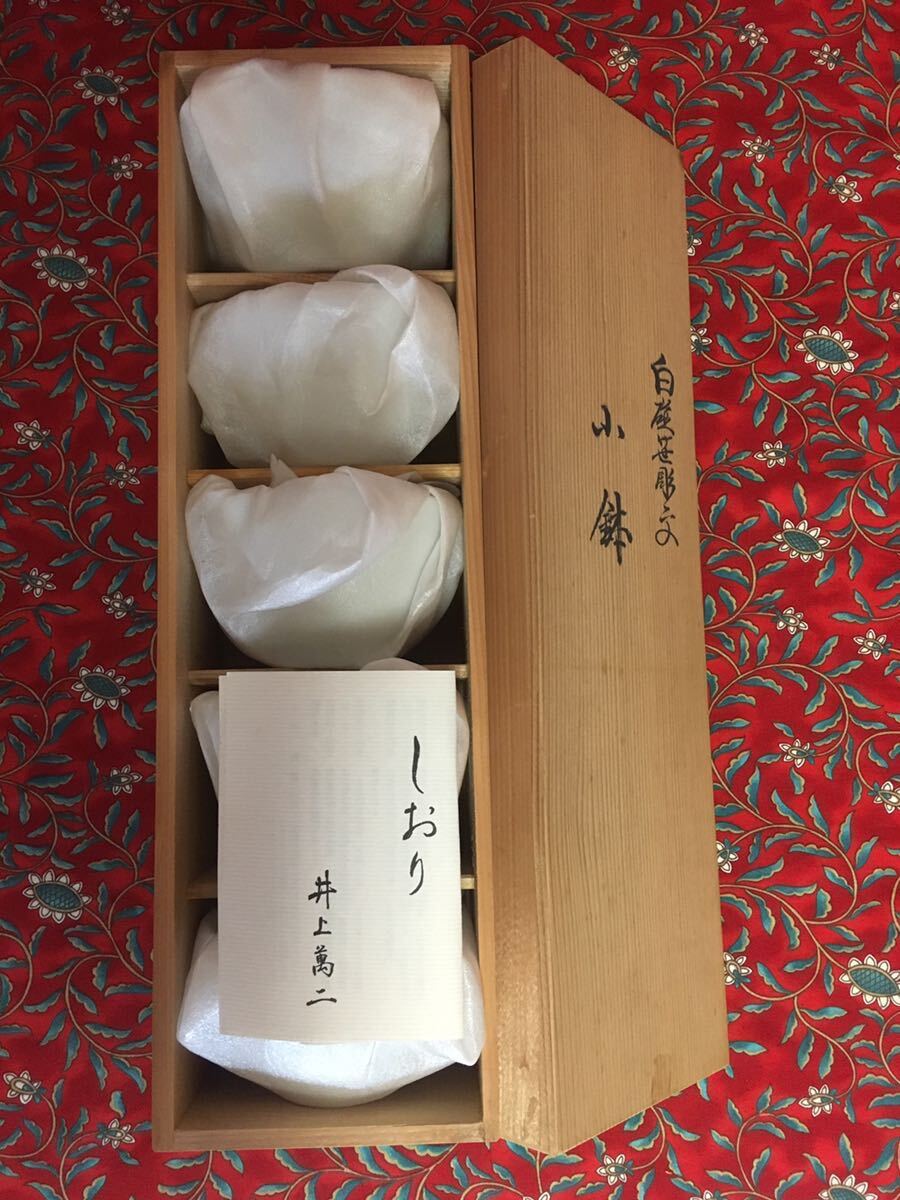 白磁笹彫文
小鉢
しおり
井上萬二